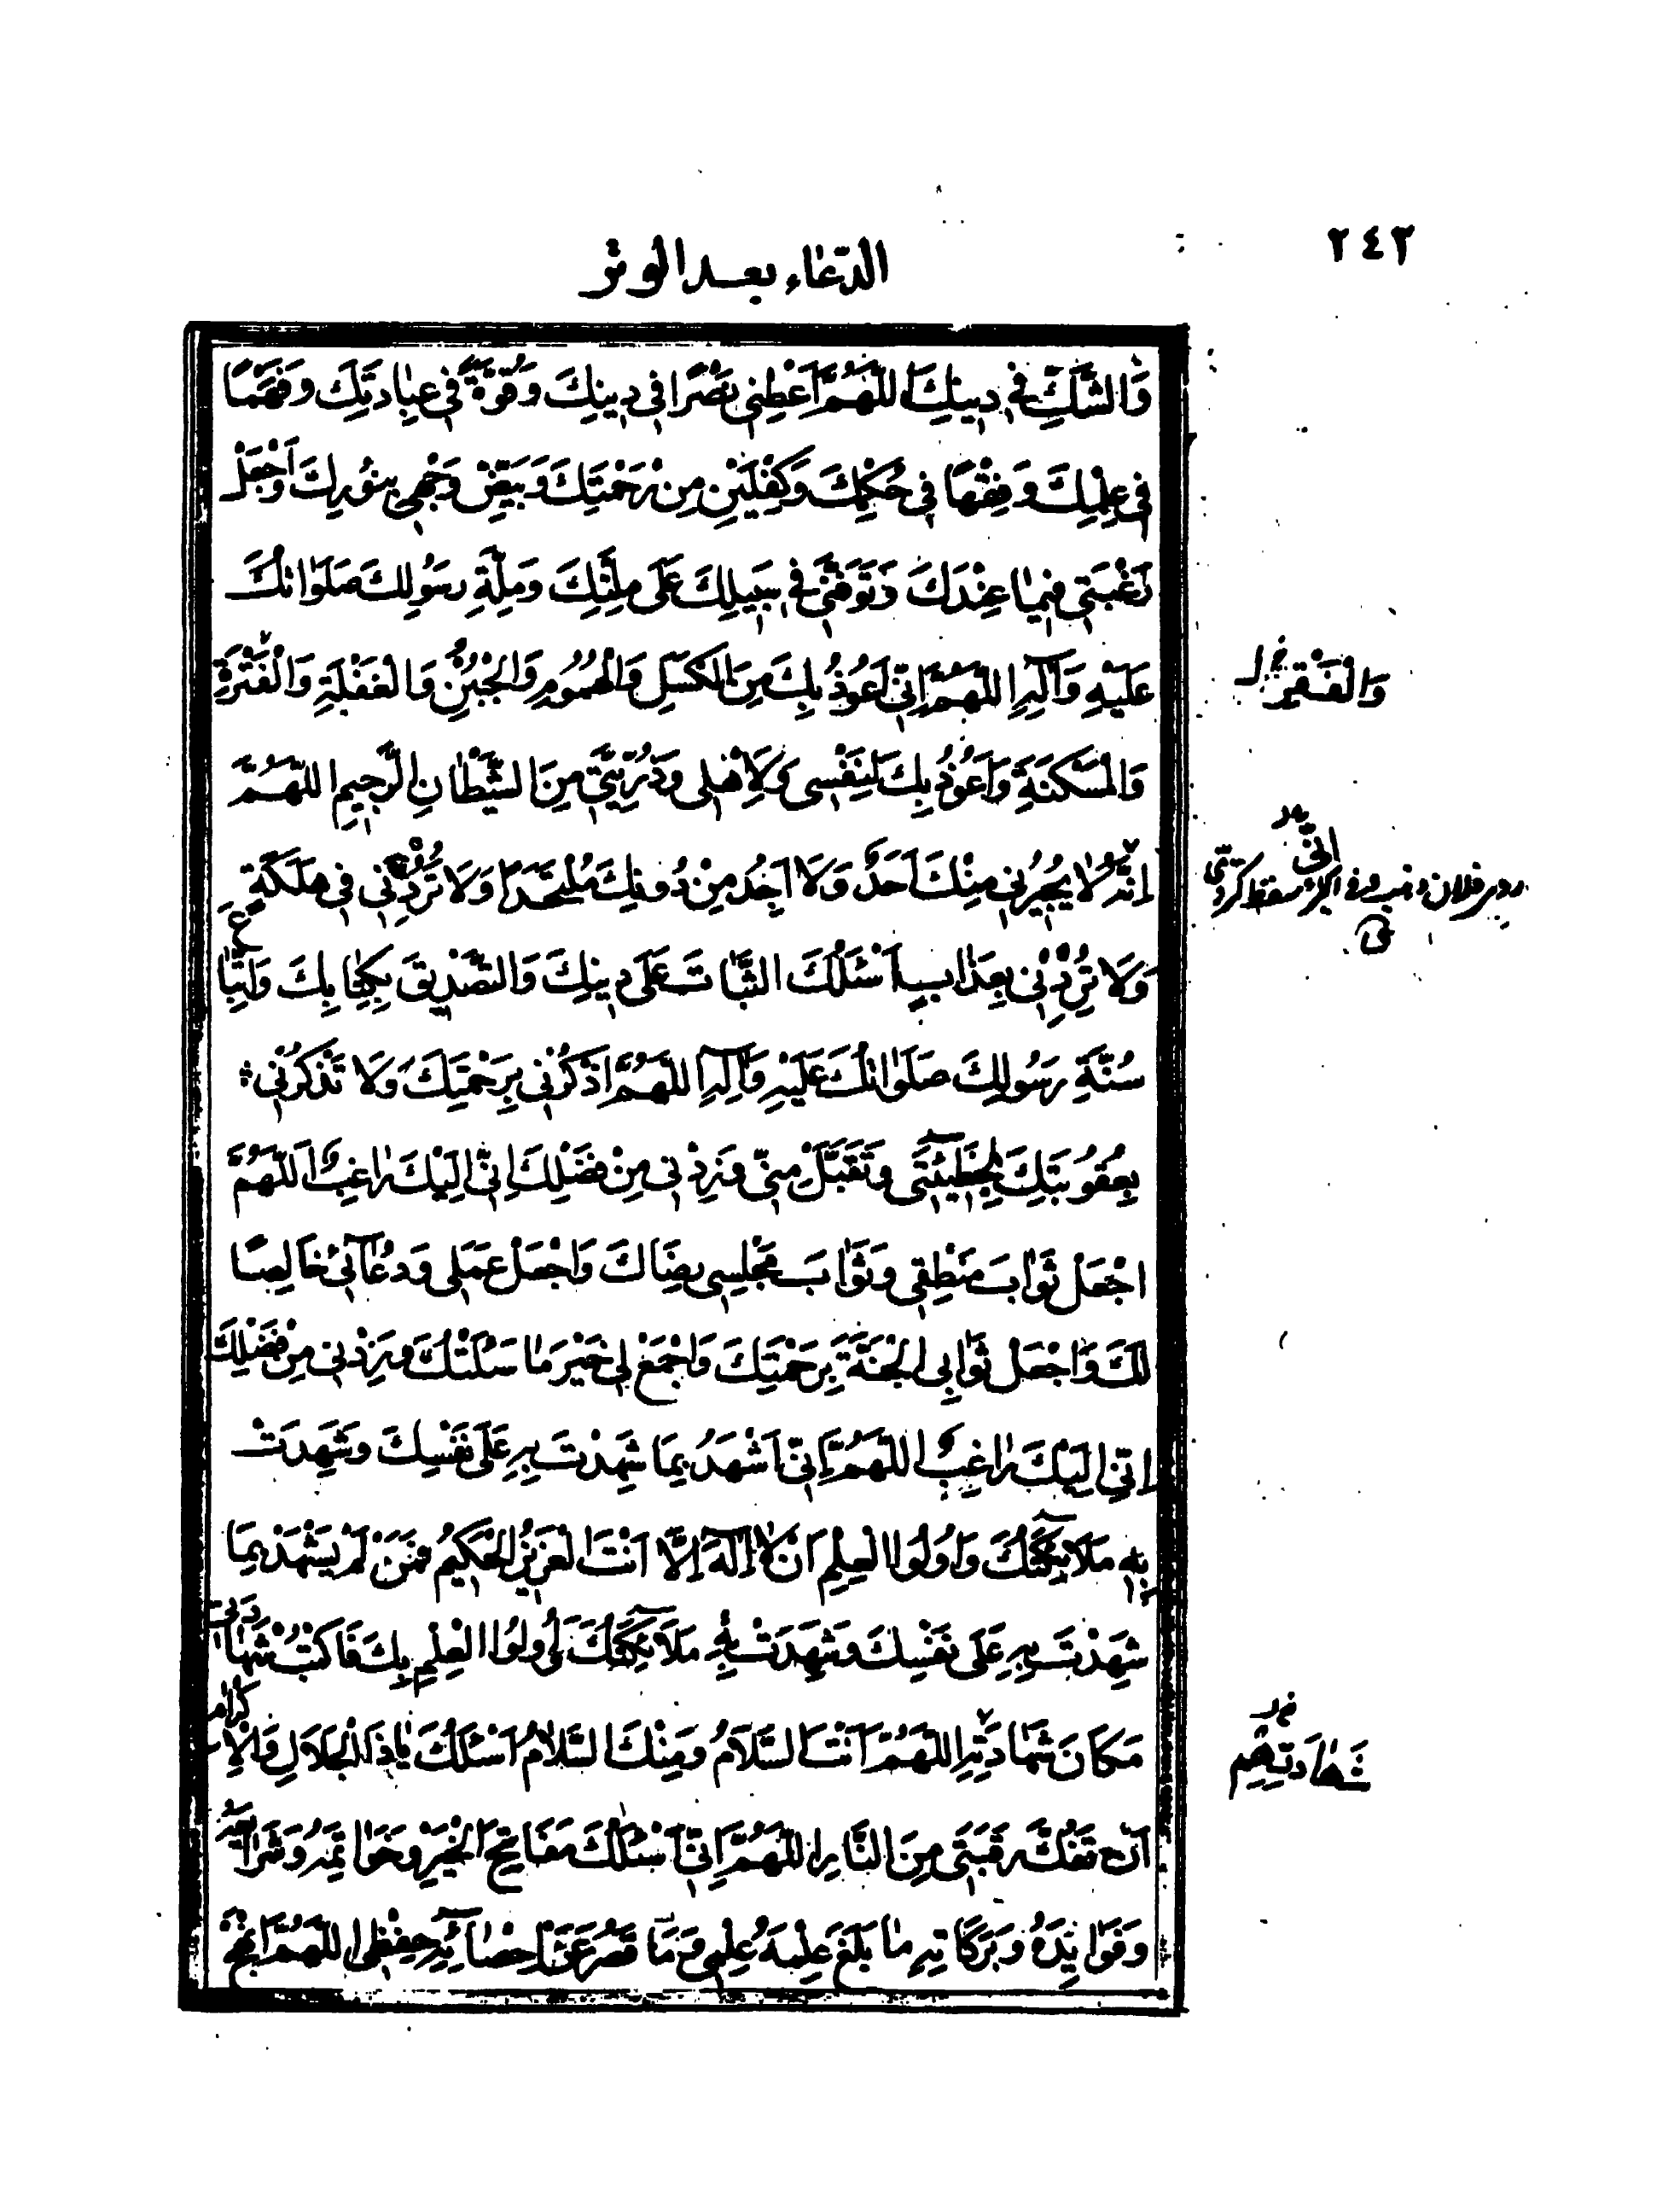 ٢٤٢
الدّعاء بعد الوتر
وَالشَّكِّ في دينِكَ اَللّهُمَّ اَعْطِني بَصَرًا في دينِكَ وَقُوَّةً في عِبادَتِكَ وَفَهْمًا
في عِلْمِكَ وَفِقْهًا في حُكْمِكَ وَكِفْلَيْنِ مِنْ رَحْمَتِكَ وَبَيِّضْ وَجْهي بِنُورِكَ وَاجْعَلْ
رَغْبَتي فيما عِنْدَكَ وَتَوَفَّني في سَبيلِكَ عَلى مِلَّتِكَ وَمِلَّةِ رَسُولِكَ صَلَواتُكَ
عَلَيْهِ وَآلِهِ اَللّهُمَّ اِنّي اَعُوذُ بِكَ مِنَ الْكَسَلِ وَالْهُمُومِ وَالْجُبْنِ وَالْغَفْلَةِ وَالْفَتْرَةِ
وَالْمَسْكَنَةِ وَاَعُوذُ بِكَ لِنَفْسي وَلِاَهْلي وَذُرِّيَّتي مِنَ الشَّيْطانِ الرَّجيمِ اَللّهُمَّ
اِنَّهُ لا يُجيرُني مِنْكَ اَحَدٌ وَلا اَجِدُ مِنْ دُونِكَ مُلْتَحَدًا وَلا تَرُدَّني في هَلَكَةٍ
وَلا تَرُدَّني بِعَذابٍ اَسْئَلُكَ الثَّباتَ عَلى دينِكَ وَالتَّصْديقَ بِكِتابِكَ وَاتِّباعَ
سُنَّةِ رَسُولِكَ صَلَواتُكَ عَلَيْهِ وَآلِهِ اَللّهُمَّ اذْكُرْني بِرَحْمَتِكَ وَلا تَذْكُرْني
بِعُقُوبَتِكَ لِخَطيئَتي وَتَقَبَّلْ مِنّي وَزِدْني مِنْ فَضْلِكَ اِنّي اِلَيْكَ راغِبٌ اَللّهُمَّ
اجْعَلْ ثَوابَ مَنْطِقي وَثَوابَ مَجْلِسي رِضاكَ وَاجْعَلْ عَمَلي وَدُعآئي خالِصًا
لَكَ وَاجْعَلْ ثَوابِيَ الْجَنَّةَ بِرَحْمَتِكَ وَاجْمَعْ لي خَيْرَ ما سَئَلْتُكَ وَزِدْني مِنْ فَضْلِكَ
اِنّي اِلَيْكَ راغِبٌ اَللّهُمَّ اِنّي اَشْهَدُ بِما شَهِدْتَ بِهِ عَلى نَفْسِكَ وَشَهِدَتْ
بِهِ مَلآئِكَتُكَ وَاُولُوا الْعِلْمِ اَنْ لا اِلهَ اِلّا اَنْتَ الْعَزيزُ الْحَكيمُ فَمَنْ لَمْ يَشْهَدْ بِما
شَهِدْتَ بِهِ عَلى نَفْسِكَ وَشَهِدَتْ بِهِ مَلآئِكَتُكَ وَاُولُوا الْعِلْمِ بِكَ فَاكْتُبْ شَهادَتي
مَكانَ شَهادَتِهِ اَللّهُمَّ اَنْتَ السَّلامُ وَمِنْكَ السَّلامُ اَسْئَلُكَ يا ذَا الْجَلالِ وَالْاِكْرامِ
اَنْ تَفُكَّ رَقَبَتي مِنَ النّارِ اَللّهُمَّ اِنّي اَسْئَلُكَ مَفاتِحَ الْخَيْرِ وَخَواتِمَهُ وَشَرايِعَهُ
وَفَوايِدَهُ وَبَرَكاتِهِ ما بَلَغَ عِلْمَهُ عِلْمي وَما قَصُرَ عَنْ اِحْصآئِهِ حِفْظي اَللّهُمَّ انْهَجْ
وَالْفَقْرِ
اِنّي
شَهادَتِهِم